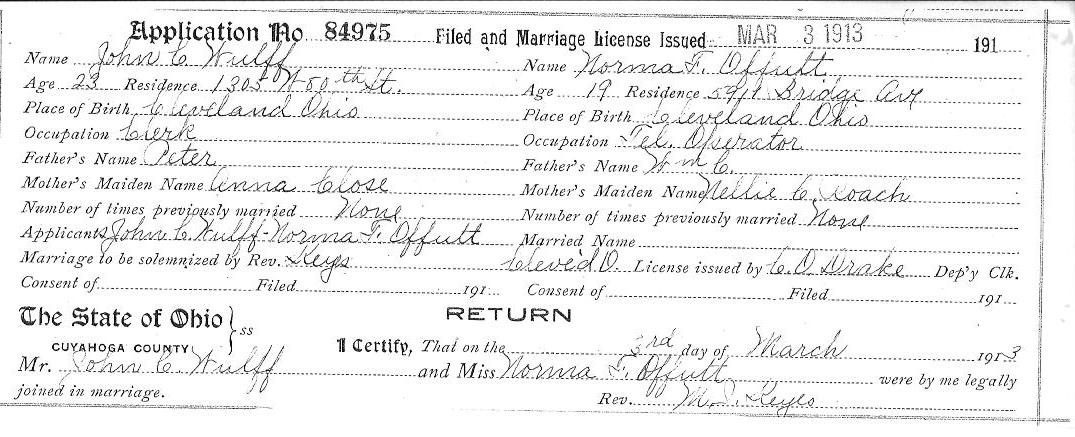 Application No 84975 Filed and Marriage License Issued MAR 3 1913 191
Name John C Wulff Name Norma F. Offutt
Age 23 Residence 1305 W 80th St. Age 19 Residence 5911 Bridge Ave
Place of Birth Cleveland Ohio Place of Birth Cleveland Ohio
Occupation Clerk Occupation Tel. Operator
Father's Name Peter Father's Name Wm C.
Mother's Maiden Name Anna Close Mother's Maiden Name Nellie C Roach
Number of times previously married None Number of times previously married None
Applicants John C. Wulff - Norma F. Offutt Married Name
Marriage to be solemnized by Rev. Keyes Cleve'd O. License issued by C. O Drake Dep'y Clk.
Consent of Filed 191 Consent of Filed 191
The State of Ohio } ss RETURN
CUYAHOGA COUNTY I Certify, That on the 3rd day of March 1913
Mr. John C. Wulff and Miss Norma F. Offutt were by me legally
joined in marriage. Rev. Keyes